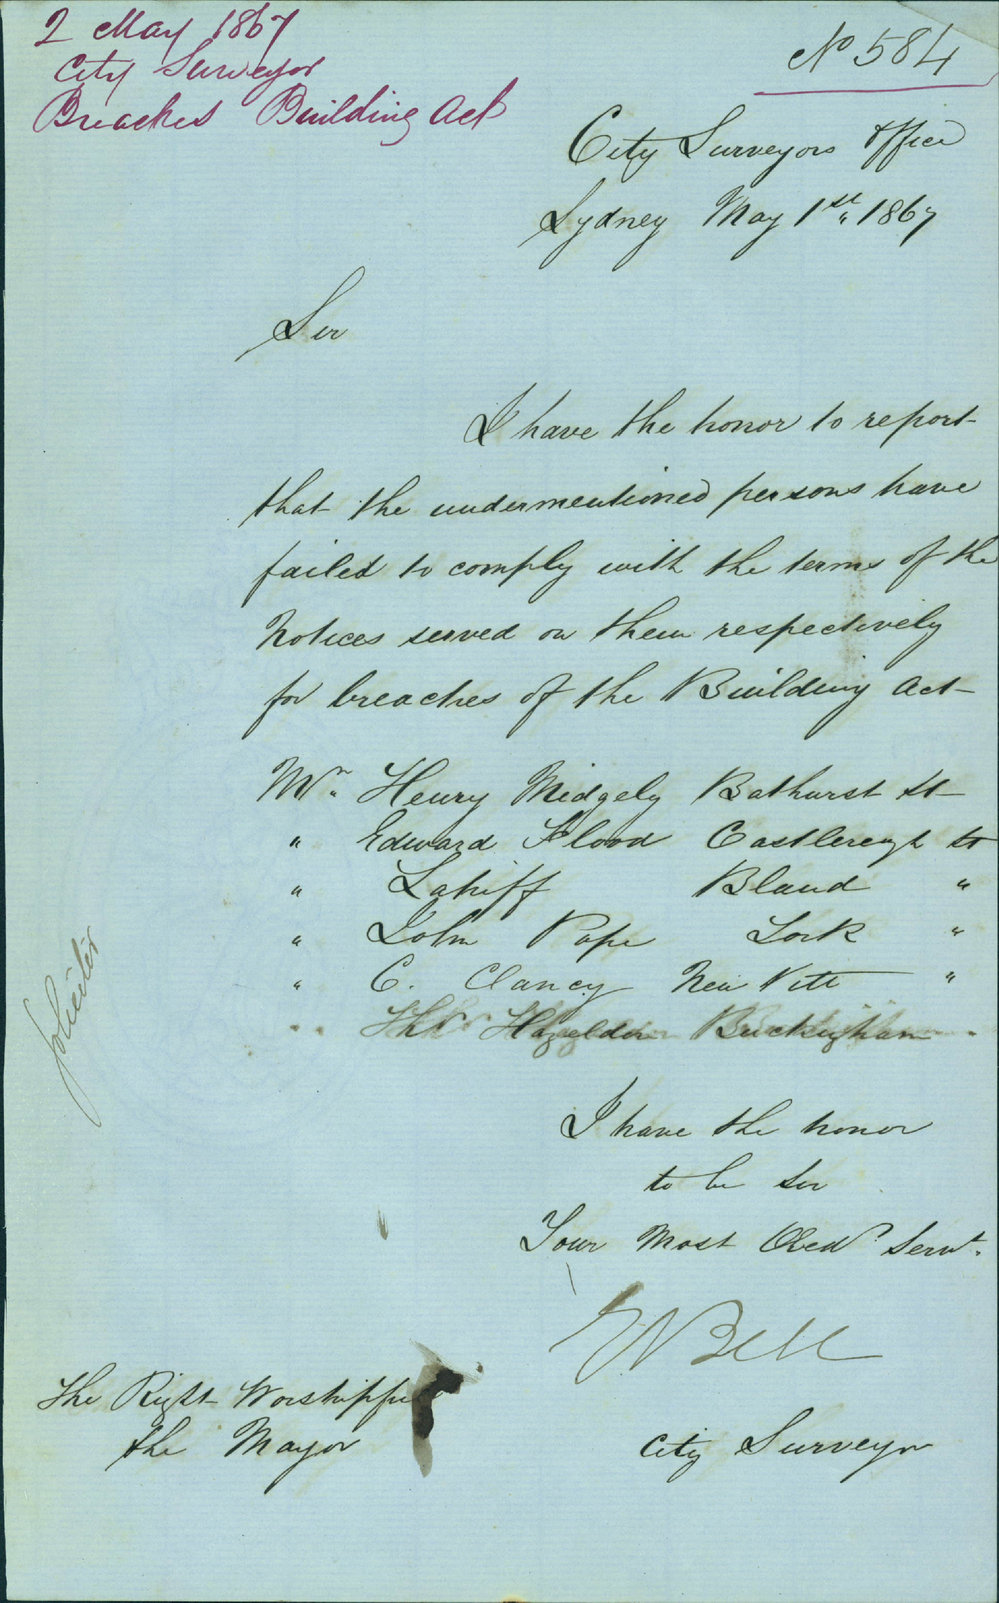 2 May 1867
City Surveyor
Breaches Building Act
No 584
City Surveyors Office
Sydney May 1st 1867
Sir
I have the honor to report
that the undermentioned persons have
failed to comply with the terms of the
Notices served on them respectively
for breaches of the Building Act
Mr. Henry Midgely Bathurst St
" Edward Flood Castlereagh St
" Lahiff Bland "
" John Pope York "
" C. Clancy New Pitt "
" Hazeldin Buckingham "
I have the honor
to be Sir
Your Most Obed. Servt.
E Bell
City Surveyor
The Right Worshipful
the Mayor
Solicitor